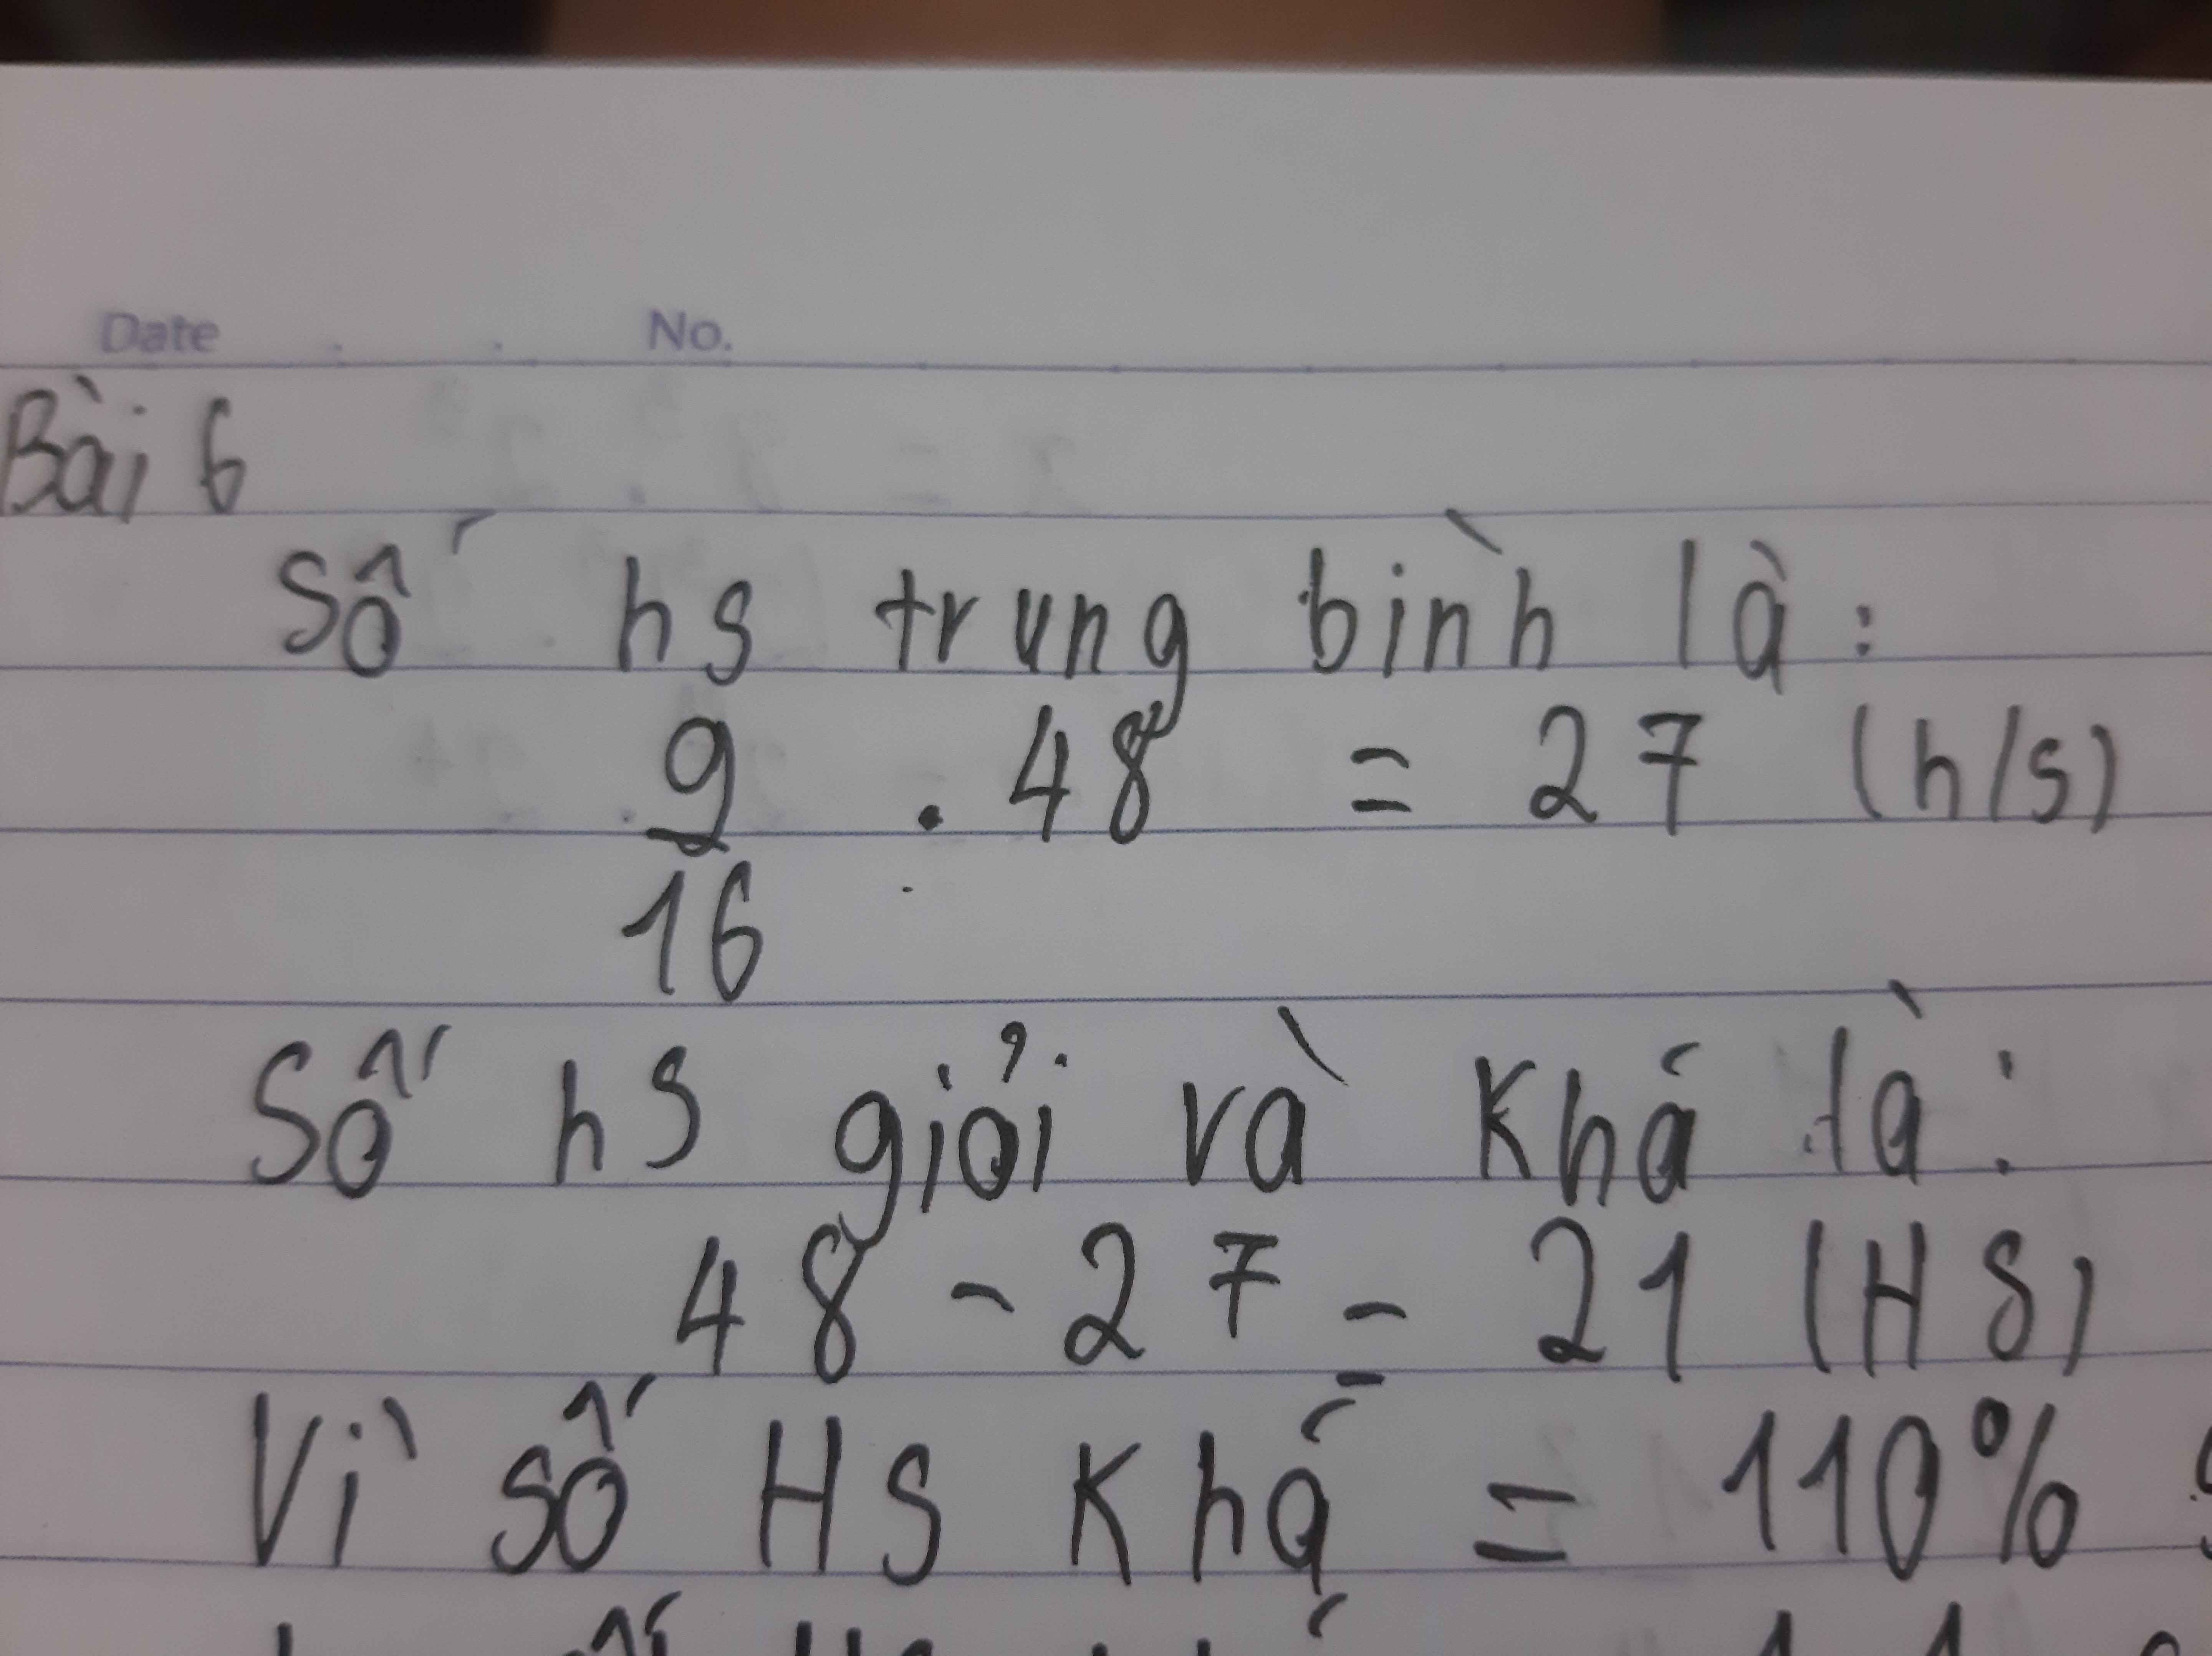 Date No.
Bài 6
Số hs trung bình là:
9/16 . 48 = 27 (h/s)
Số hS giỏi và Khá là:
48 - 27 = 21 (HS)
Vì số HS Khá = 110%